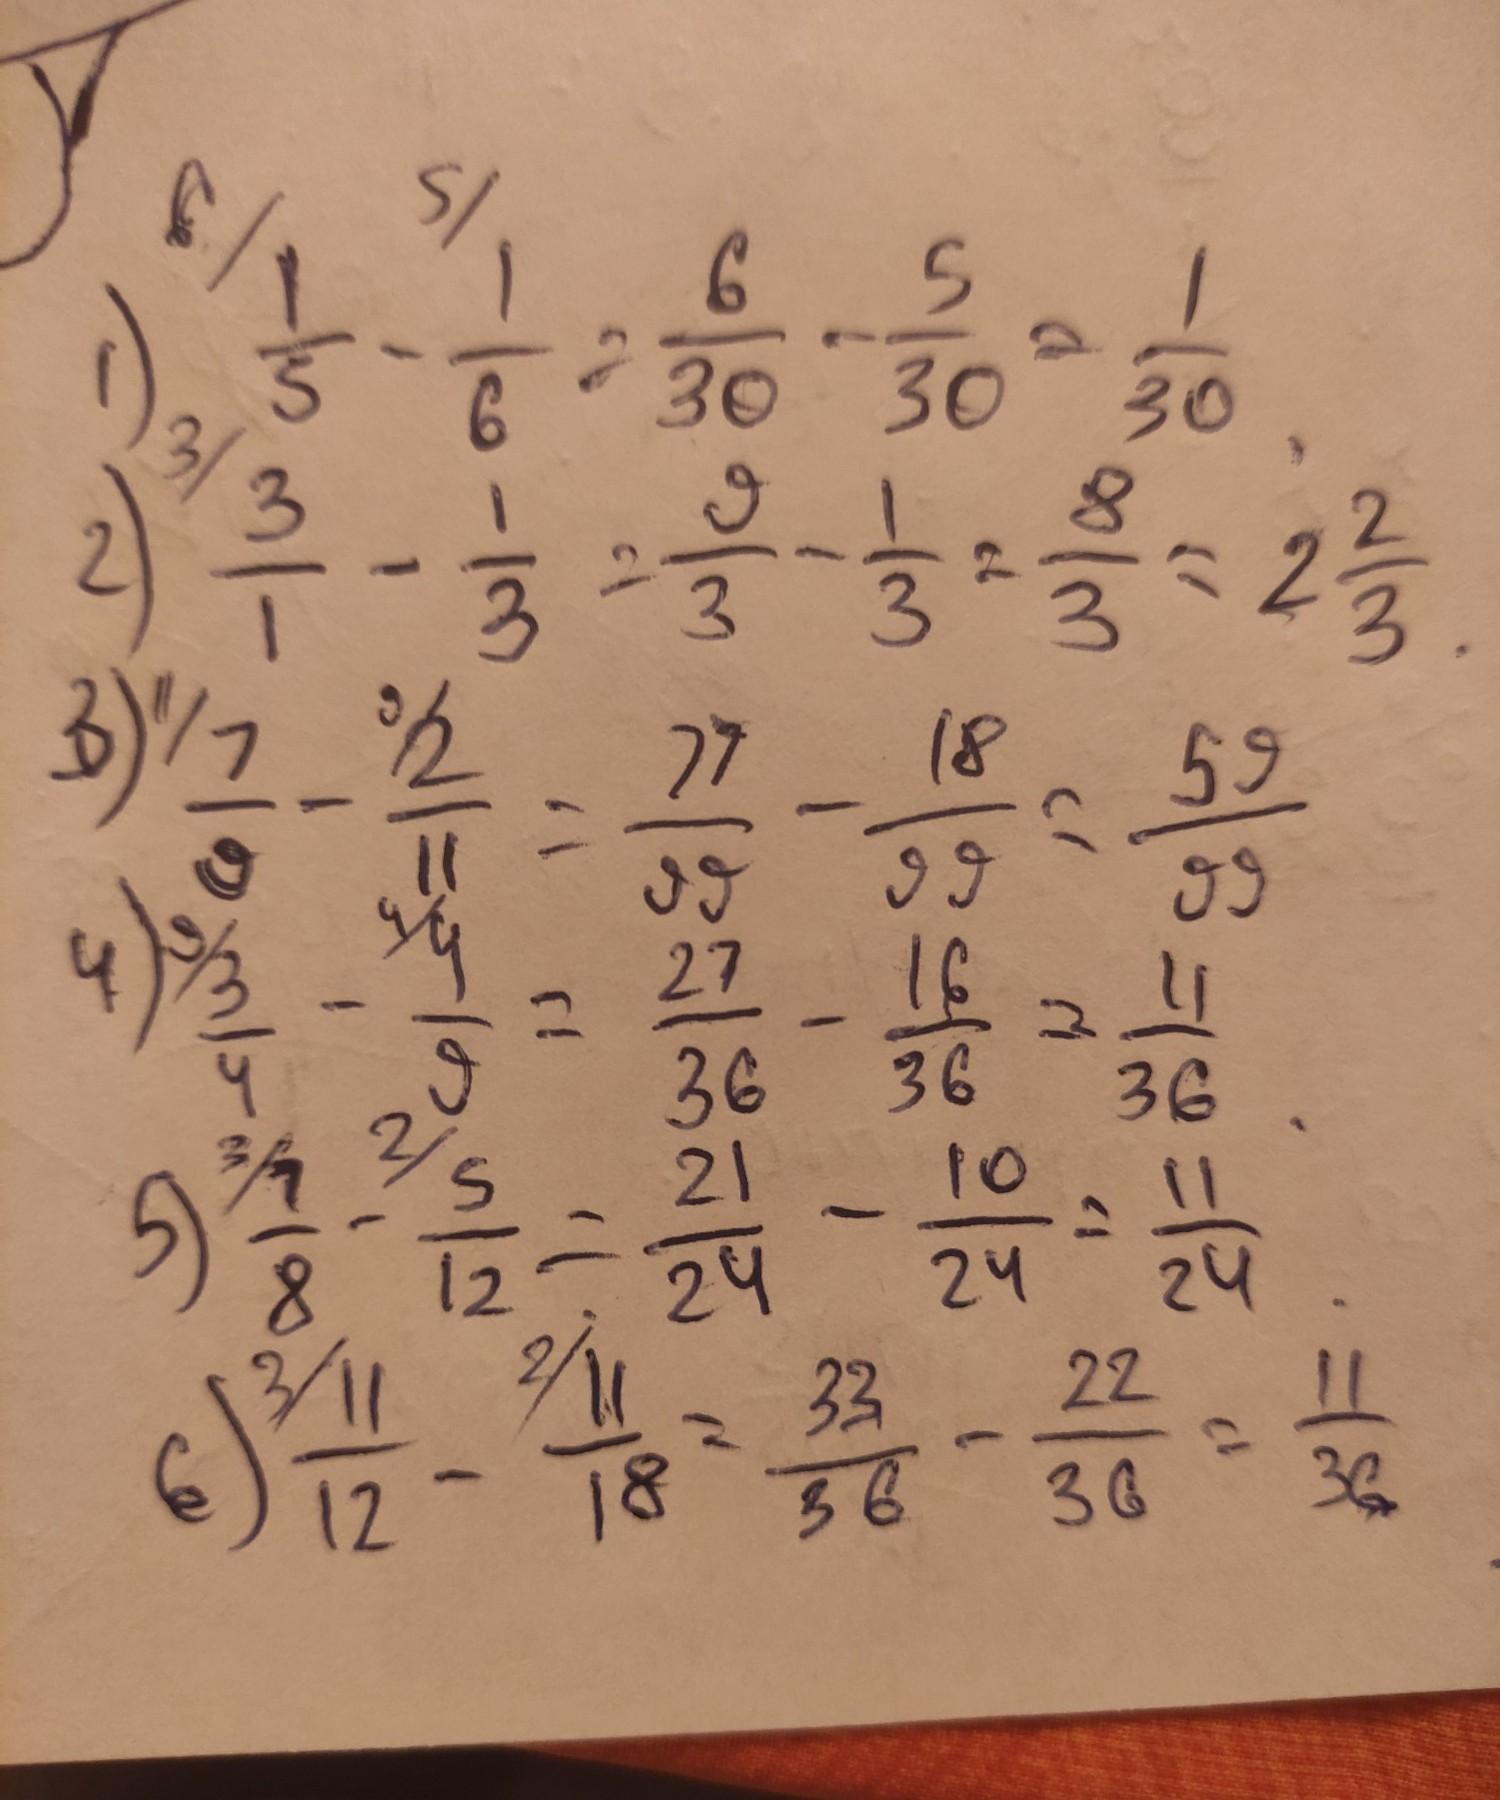 1) 6/ 1/5 - 5/ 1/6 = 6/30 - 5/30 = 1/30.
2) 3/ 3/1 - 1/3 = 9/3 - 1/3 = 8/3 = 2 2/3.
3) 11/ 7/9 - 9/ 2/11 = 77/99 - 18/99 = 59/99
4) 9/ 3/4 - 4/ 4/9 = 27/36 - 16/36 = 11/36.
5) 3/ 7/8 - 2/ 5/12 = 21/24 - 10/24 = 11/24.
6) 3/ 11/12 - 2/ 11/18 = 33/36 - 22/36 = 11/36.